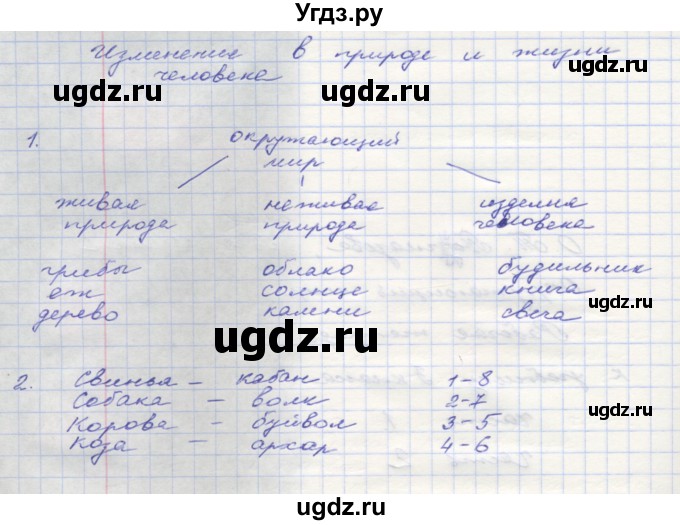 Угдз.ру
Изменение в природе и жизни
человека
ugdz.ru ugdz.ru ugdz.ru
1. окружающий
мир
ugdz.ru
живая неживая изделия
природа природа человека
грибы облако будильник
ёж солнце книга
дерево камни свеча
ugdz.ru ugdz.ru ugdz.ru
2. Свинья – кабан 1-8
Собака – волк 2-7
Корова – буйвол 3-5
Коза – архар 4-6
ugdz.ru
ugdz.ru